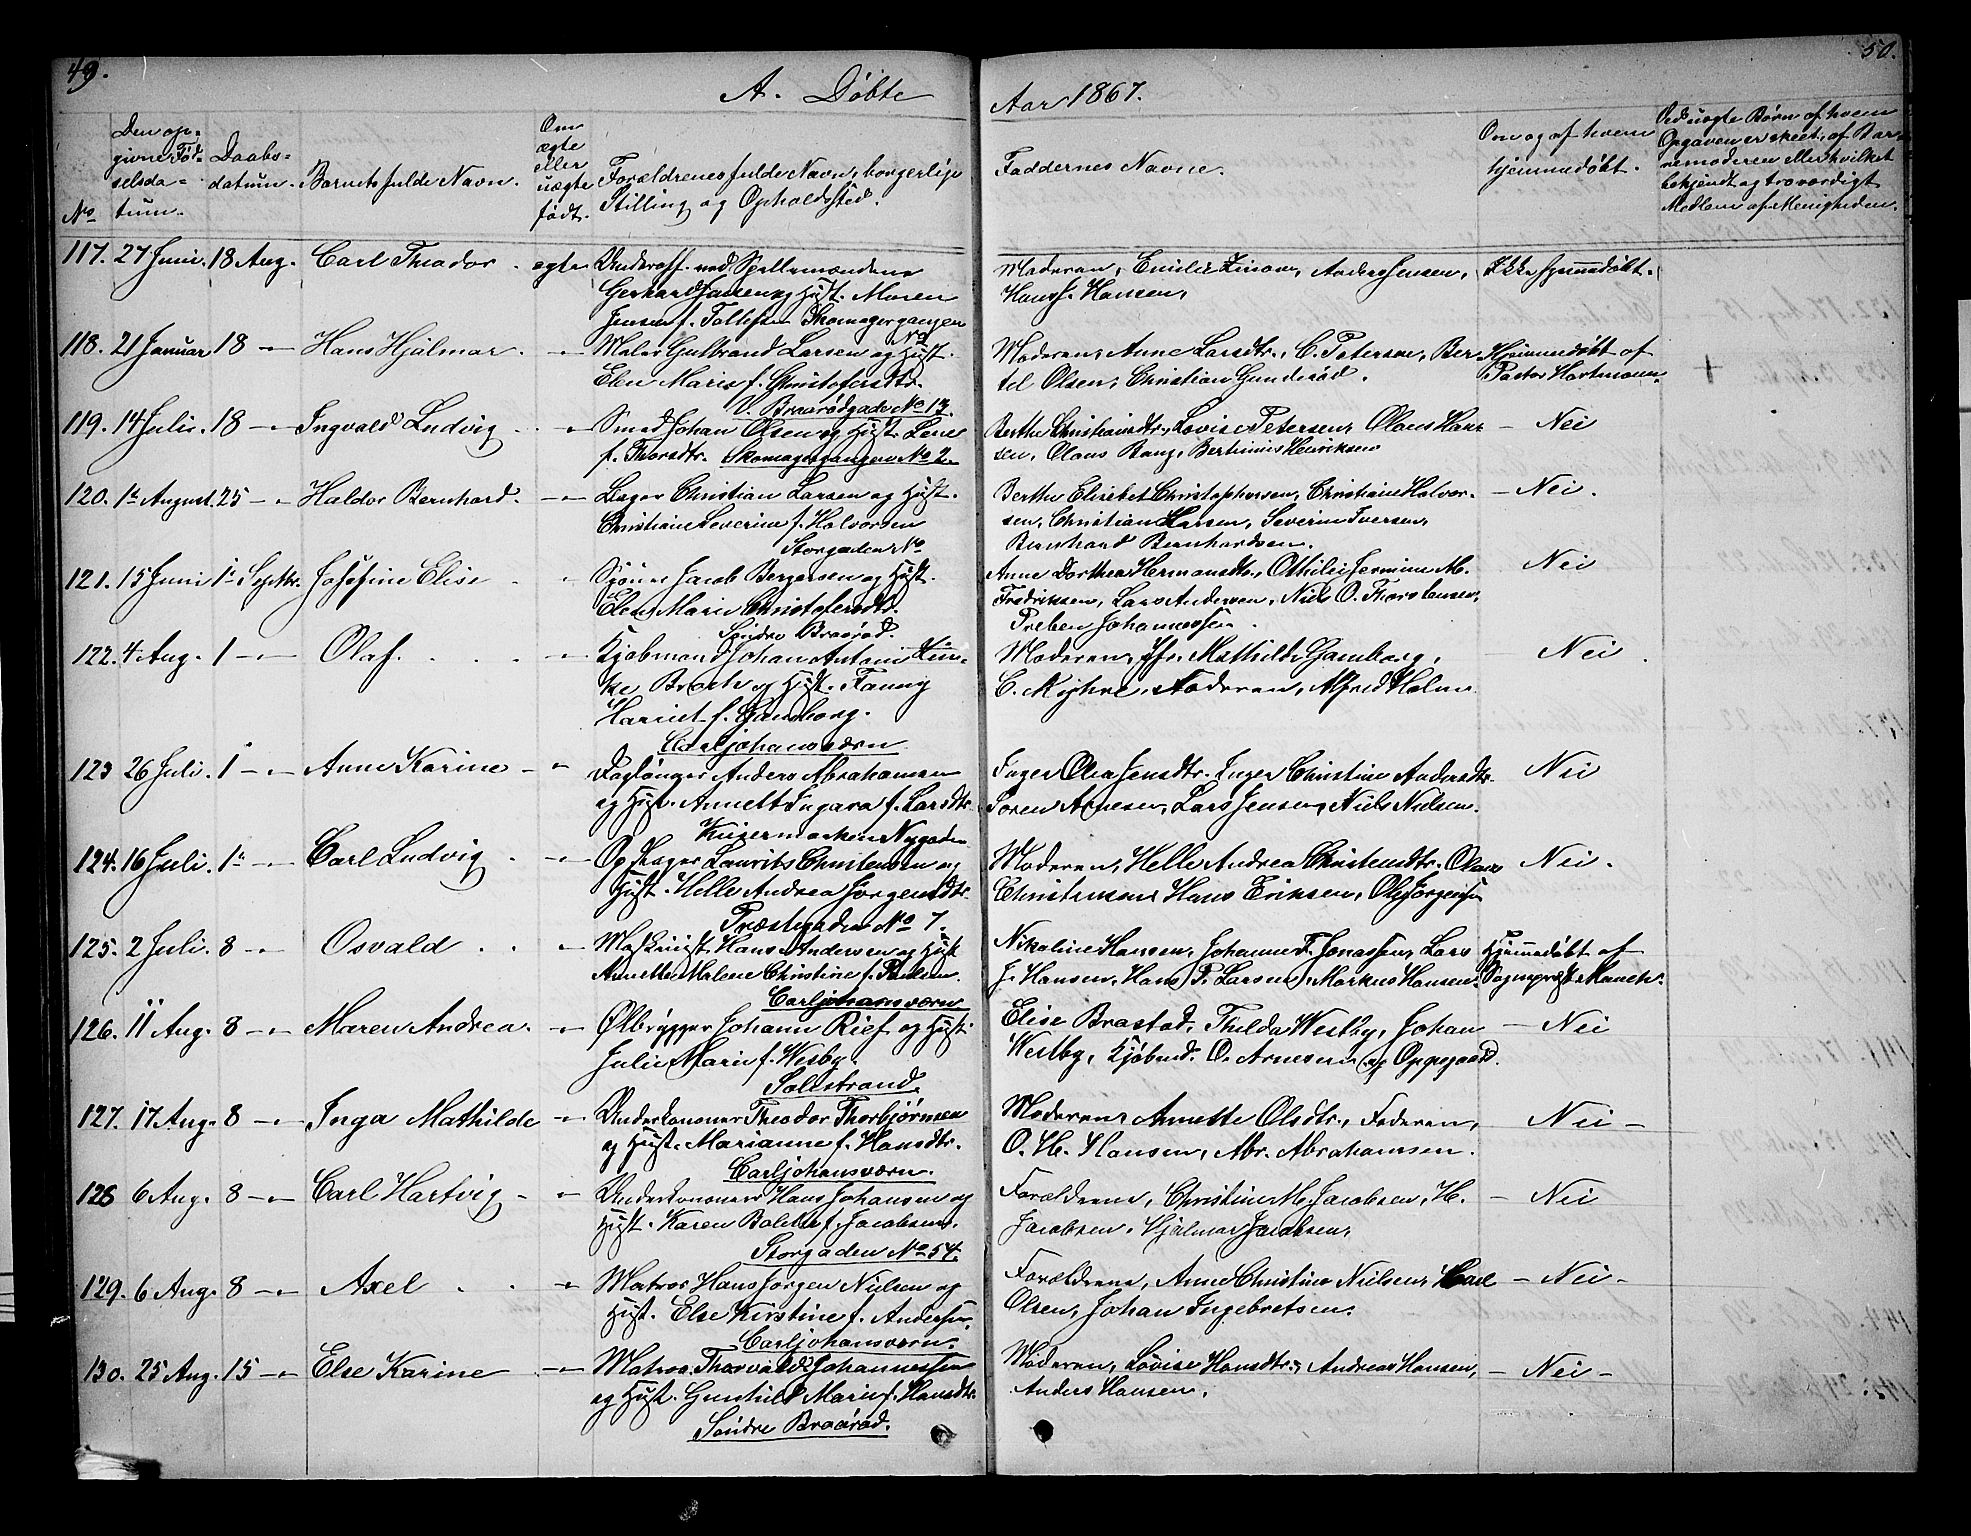 49.
50.
A. Döbte
Aar 1867.
No
Den op-
givne Fød-
selsda-
tum.
Daabs-
datum.
Barnets fulde Navn.
Om
ægte
eller
uægte
født.
Forældrenes fulde Navn, borgerlige
Stilling og Opholdssted.
Faddernes Navne.
Om og af hvem
hjemmedøbt.
Ved uægte Børn af hvem
Opgaven er skeet, af Bar-
nemoderen eller hvilket
bekjendt og troværdigt
Medlem af Menigheden.
117. 27 Juni. 18 Aug. Carl Theodor. ægte
Underoff. ved Spillemændene
Gerhard Jansen og Hust. Maren
Jensen f. Tollefsen Skomagergangen
Moderen, Emilie, Anders Jensen,
Hans J. Hansen,
Ikke hjemmedøbt.
118. 21 Januar 18 -"- Hans Hjalmar. -"-
Maler Gulbrand Larsen og Hust.
Elen Marie f. Christofersdtr.
V. Braarødgade No 13.
Moderen, Anne Larsdtr., C. Petersen, Ber-
tel Olsen, Christian Gunderød.
Hjemmedøbt af
Pastor Hartmann.
+
119. 14 Juli. 18 -"- Ingvald Ludvig -"-
Smed Johan Olsen og Hust. Lene
f. Thorsdtr. Skomagergangen No 2.
Berthe Christiansdtr., Lovise Petersen, Olaus Han-
sen, Olaus Bang, Berthinius Henriksen
- Nei
120. 1ste August. 25 -"- Haldor Bernhard. -"-
Bager Christian Larsen og Hust.
Christiane Severine f. Halvorsen
Storgaden No
Berthe Elisebet Christophersen, Christiane Halvor-
sen, Christian Larsen, Severin Iversen,
Bernhard Bernhardsen.
- Nei.
121. 15 Juni 1ste Septbr. Josefine Elise -"-
Sjöm. Jacob Bergersen og Hust.
Elen Marie Christofersdtr.
Søndre Braarød.
Anne Dorthea Hermansdtr., Othilie Jermine M.
Fredriksen, Lars Andersen, Niels O. Thorstensen,
Preben Johannessen.
Nei
122. 4 Aug. 1 -"- Olaf. -"-
Kjøbmand Johan Anton
Broch og Hust. Fanny
Harriet f. Gamborg.
Carljohansværn
Moderen, Jfr. Mathilde Gamborg,
C. Kyhne, Faderen, Alfred Holm
- Nei
123 26 Juli. 1 -"- Anne Karine -"-
Dagløner Anders Abrahamsen
og Hust. Annette Ingara f. Larsdtr.
Nygaden
Inger Olea Jensdtr., Inger Christine Andersdtr.
Søren Arnesen, Lars Jensen, Niels Nielsen.
Nei
124. 16 Juli. 1ste -"- Carl Ludvig -"-
Opsager Laurits Christensen og
Hust. Helle Andrea Jørgensdtr.
Præstegaden No 7.
Moderen, Helle Andrea Christensdtr. Olaus
Christensen, Hans Eriksen, Ole Jörgensen
Nei.
125. 2 Juli. 8 -"- Osvald -"-
Maskinist Hans Andersen og Hust
Annette Malene Christine f. Paulsen.
Carljohansværn
Nikoline Hansen, Johanne F. Jonassen, Lars
J. Hansen, Hans P. Larsen, Markus Hansen.
Hjemmedøbt af
Sognepræst Munch.
126. 11 Aug. 8 -"- Maren Andrea. -"-
Ølbrygger Johann Rief og Hust.
Julie Marie f. Wesby.
Falkestrand.
Elise Brastad, Thilda Westby, Johan
Westby, Kjøbmd. O. Arnesen og Oppegaard.
- Nei
127. 17 Aug. 8 -"- Inga Mathilde -"-
Underkanoner Theodor Thorbjørnsen
og Hust. Marianne f. Hansdtr.
Carljohansværn.
Moderen, Annette Olsdtr., Faderen,
O. H. Hansen, Abr. Abrahamsen.
Nei -
128 6 Aug. 8 -"- Carl Hartvig -"-
Underkanoner Hans Johansen og
Hust. Karen Bolette f. Jacobsen.
Storgaden No 54.
Forældrene, Christine M. Jacobsen, H.
Jacobsen, Hjalmar Jacobsen,
- Nei
129. 6 Aug. 8 -"- Axel -"-
Matros Hans Jørgen Nielsen og
Hust. Else Kirstine f. Andersen,
Carljohansværn.
Forældrene, Anne Christine Nielsen, Carl
Olsen, Johan Ingebretsen.
- Nei -
130. 25 Aug. 15 -"- Else Karine -"-
Matros Thorvald Johannessen
og Hust. Gunhild Marie f. Hansdtr.
Søndre Braarød.
Moderen, Lovise Hansdtr., Andreas Hansen,
Anders Hansen,
- Nei -